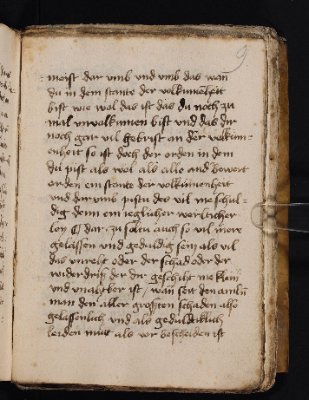 9
meist dar vmb vnd vmb das wan
du in dem stante der volkumēheit
bist wie wol das ist das du noch zu
mal vnvolkumen bist vnd das dir
noch gar vil gebrist an der volkum-
enheit so ist doch der orden in dem
du pist als wol als alle and
orden ein stante der volkumenheit
vnd dar vmb pistu des vil me schul-
dig denn ein ieglicher werltlicher
ley dar zu soltu auch so vil mere
gelassen vnd geduldig sein als vil
das vnreht oder der schad oder der
widerdriß der dir geschiht me klein
vnd ist / wan seit den
man den aller grosten schaden also
gelassenlich vnd als gedultiklich
leiden muß als vor bescheiden ist